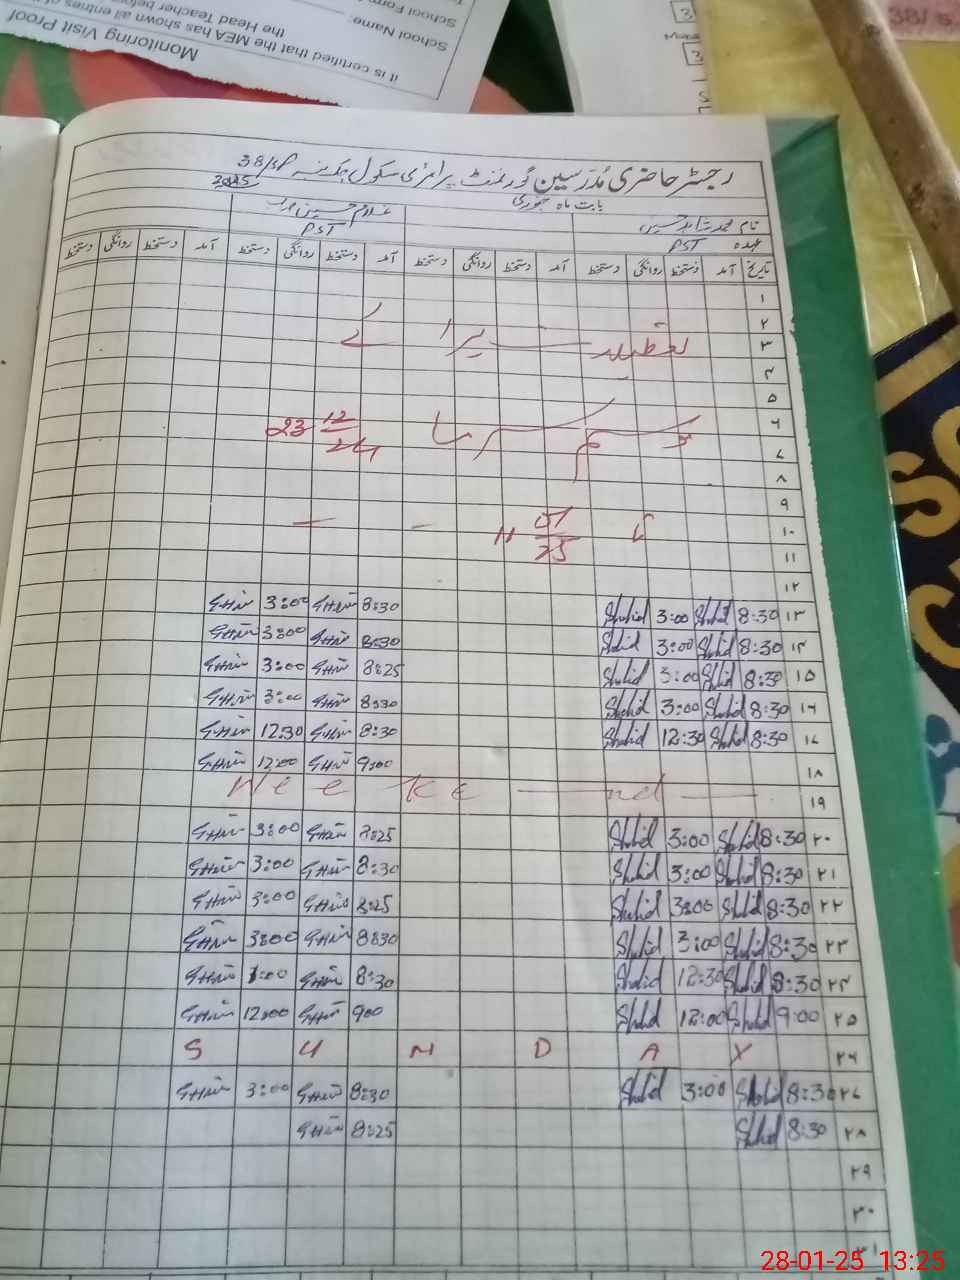 Monitoring Visit Proof
it is certified that the MEA has shown all entries of the
the Head Teacher before
School Name:
38/
رجسٹر حاضری مدرسین گورنمنٹ پرائمری سکول چک نمبر 38/SP
بابت ماہ جنوری 2025
نام محمد شاہد حسین غلام حسین
عہدہ PST PST
تاریخ آمد دستخط روانگی دستخط آمد دستخط روانگی دستخط آمد دستخط روانگی دستخط آمد دستخط روانگی دستخط
۱
۲
۳ تعطیلات برائے
۴
۵
۶ موسم سرما 23 12/24
۷
۸
۹
۱۰ تا 11 01/25
۱۱
۱۲
۱۳ 8:30 Shahid 3:00 Shahid 8:30 GHin 3:00 GHin
۱۴ 8:30 Shahid 3:00 Shahid 8:30 GHin 3:00 GHin
۱۵ 8:30 Shahid 3:00 Shahid 8:25 GHin 3:00 GHin
۱۶ 8:30 Shahid 3:00 Shahid 8:30 GHin 3:00 GHin
۱۷ 8:30 Shahid 12:30 Shahid 8:30 GHin 12:30 GHin
۱۸ 9:00 GHin 12:00 GHin
۱۹ Wee KE nd
۲۰ 8:30 Shahid 3:00 Shahid 8:25 GHin 3:00 GHin
۲۱ 8:30 Shahid 3:00 Shahid 8:30 GHin 3:00 GHin
۲۲ 8:30 Shahid 3:00 Shahid 8:25 GHin 3:00 GHin
۲۳ 8:30 Shahid 3:00 Shahid 8:30 GHin 3:00 GHin
۲۴ 8:30 Shahid 12:30 Shahid 8:30 GHin 1:00 GHin
۲۵ 9:00 Shahid 12:00 Shahid 900 GHin 12:00 GHin
۲۶ S U N D A Y
۲۷ 8:30 Shahid 3:00 Shahid 8:30 GHin 3:00 GHin
۲۸ 8:30 Shahid 8:25 GHin
۲۹
۳۰
۳۱
28-01-25 13:25